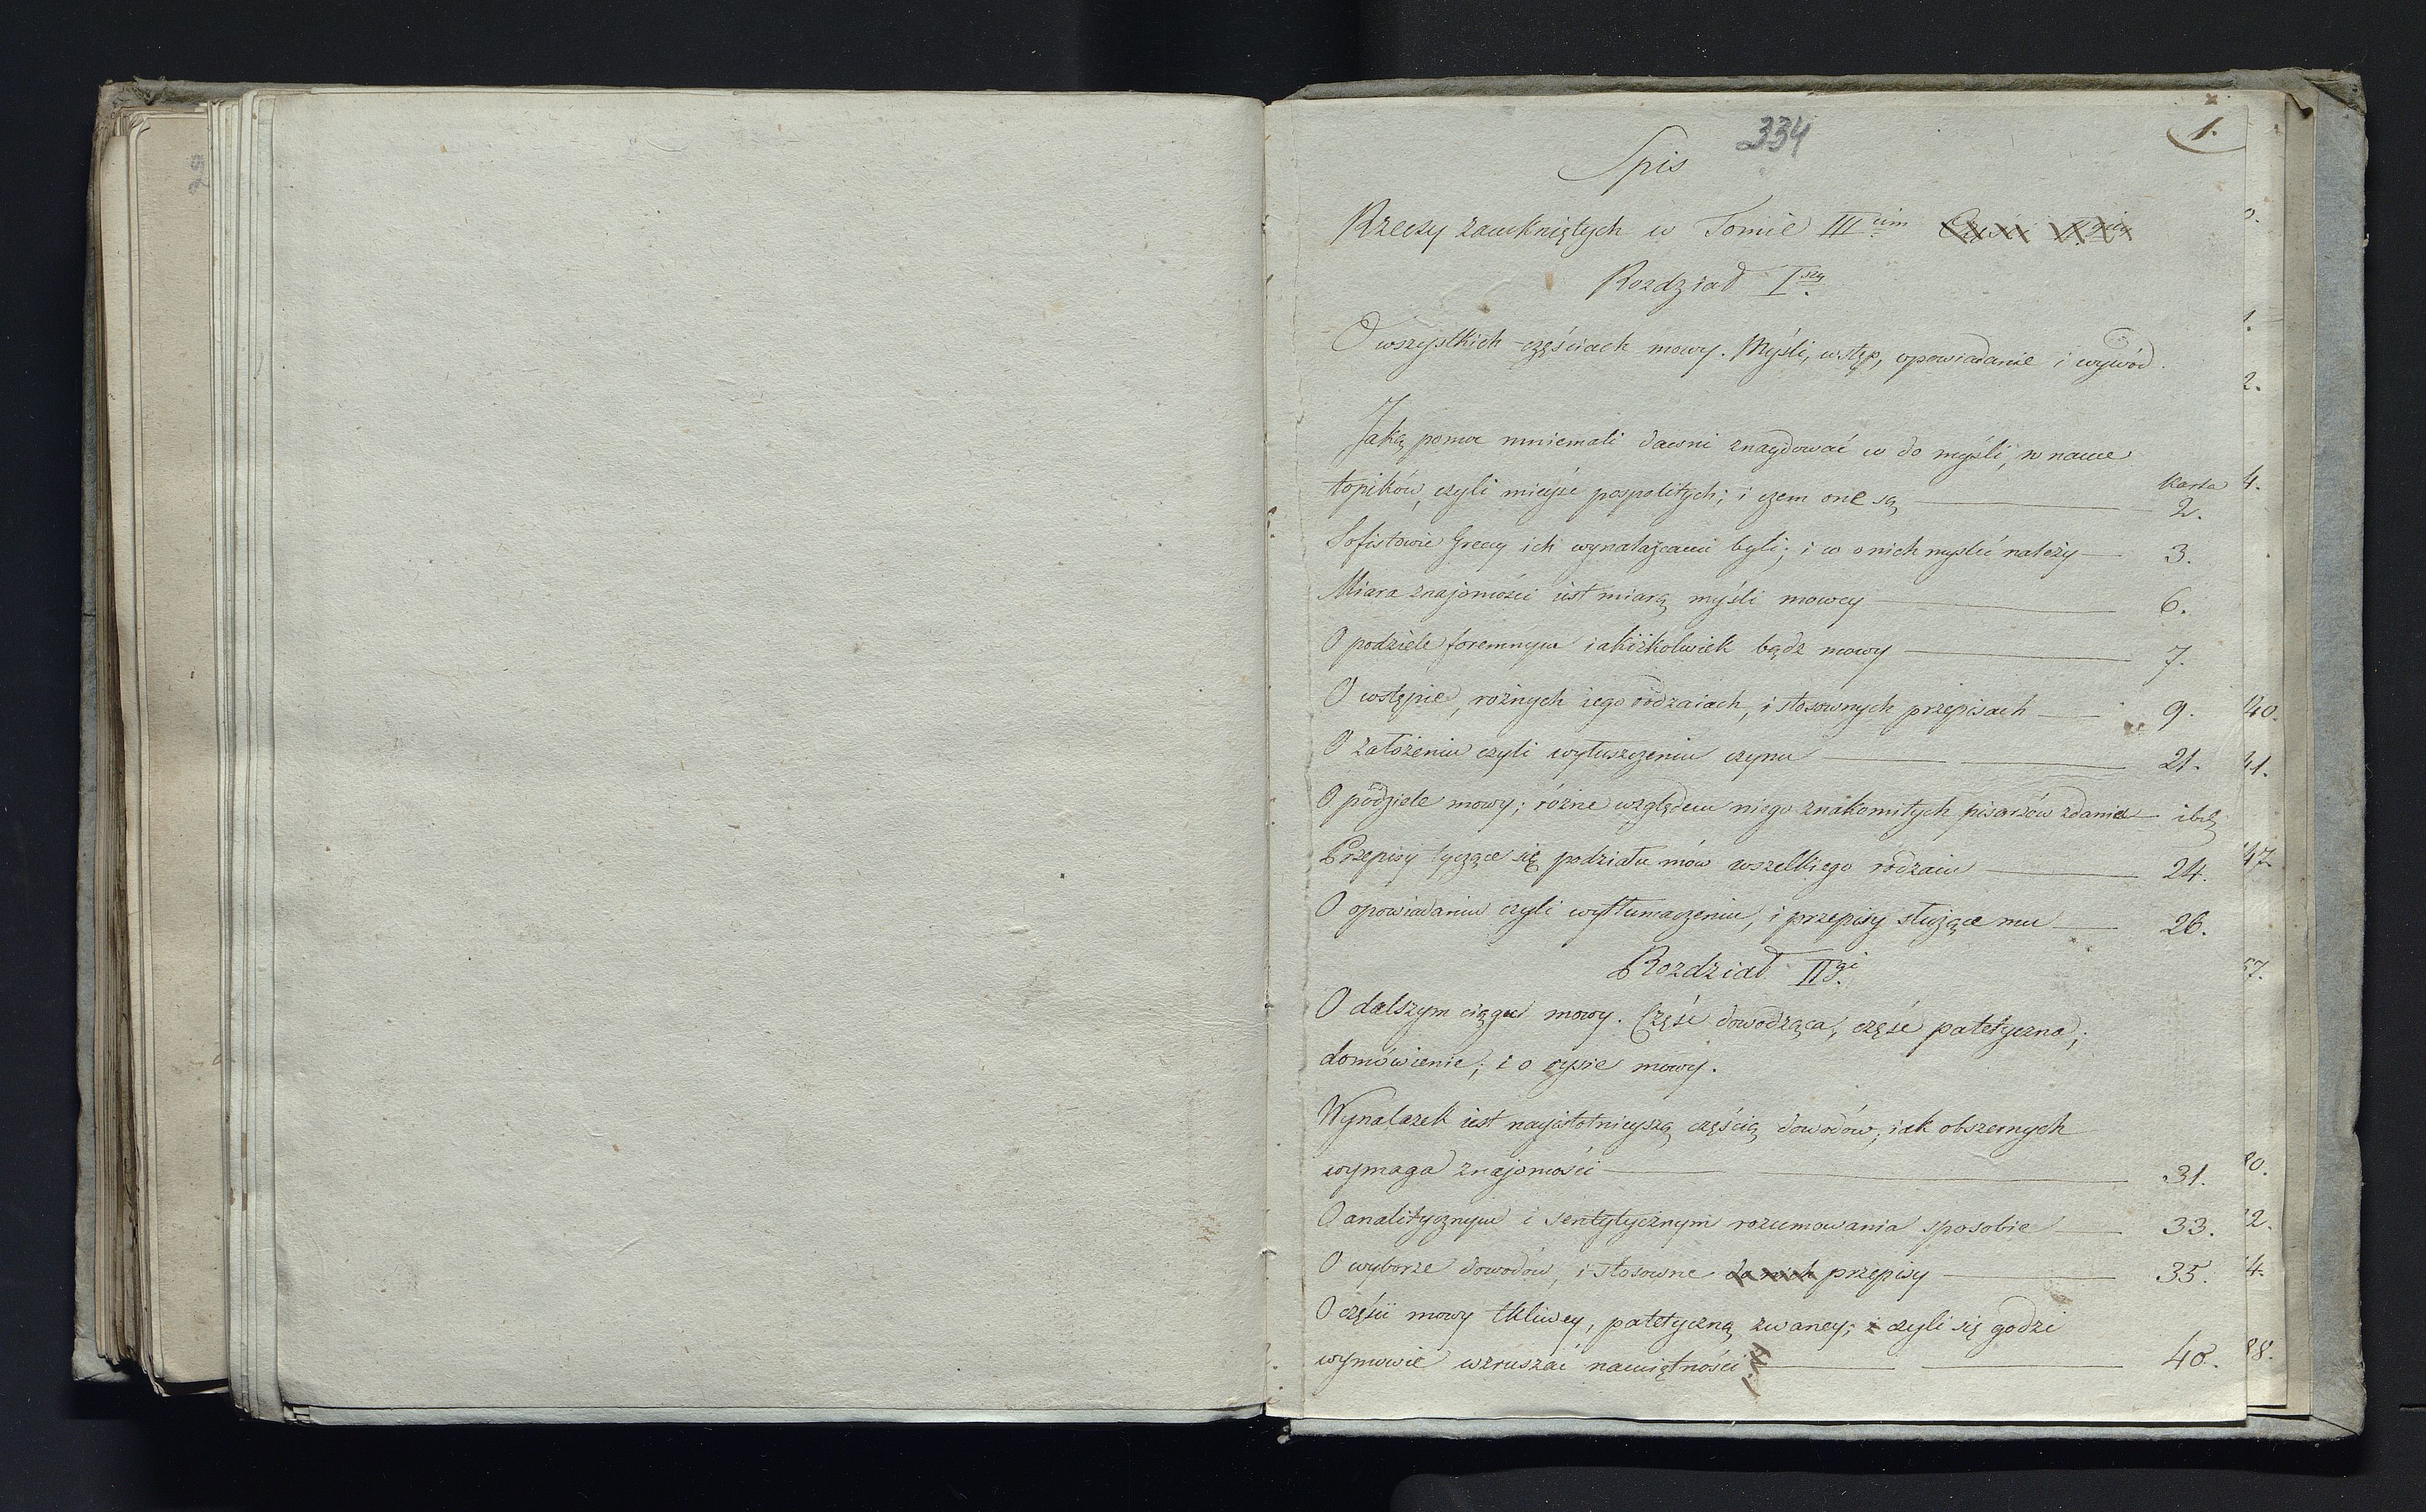 334
1.
Spis
Rzeczy zamkniętych w Tomie III cim
Rozdział I szy
O wszystkich częściach mowy. Myśli, wstęp, opowiadanie i wywód.
Jaką pomoc mniemali dawni znaydować co do myśli, w nauce
topików, czyli mieysc pospolitych; i czem one są karta 2.
Sofistowie Grecy ich wynalazcami byli; i co o nich myslić należy 3.
Miara znajomości iest miarą myśli mowcy 6.
O podziele foremnym iakiżkolwiek bądz mowy 7.
O wstępie, roźnych iego rodzaiach, i stosownych przepisach 9.
O założeniu czyli wyłuszczeniu czynu 21.
O podziele mowy; różne względem niego znakomitych pisarzów zdania ibd
Przepisy tyczące się podziału mów wszelkiego rodzaiu 24.
O opowiadaniu czyli wytłumaczeniu, i przepisy służące mu 26.
Rozdział II gi
O dalszym ciągu mowy. Część dowodząca, część patetyczna;
domówienie; i o rysie mowy.
Wynalazek iest nayistotnieyszą częścią dowodów; iak obszernych
wymaga znajomości 31.
O analitycznym i sentytycznym rozumowania sposobie 33.
O wyborze dowodów, i stosowne do nich przepisy 35.
O części mowy tkliwey, patetyczną zwaney; i czyli się godzi
wymowie wzruszać namiętności 40.